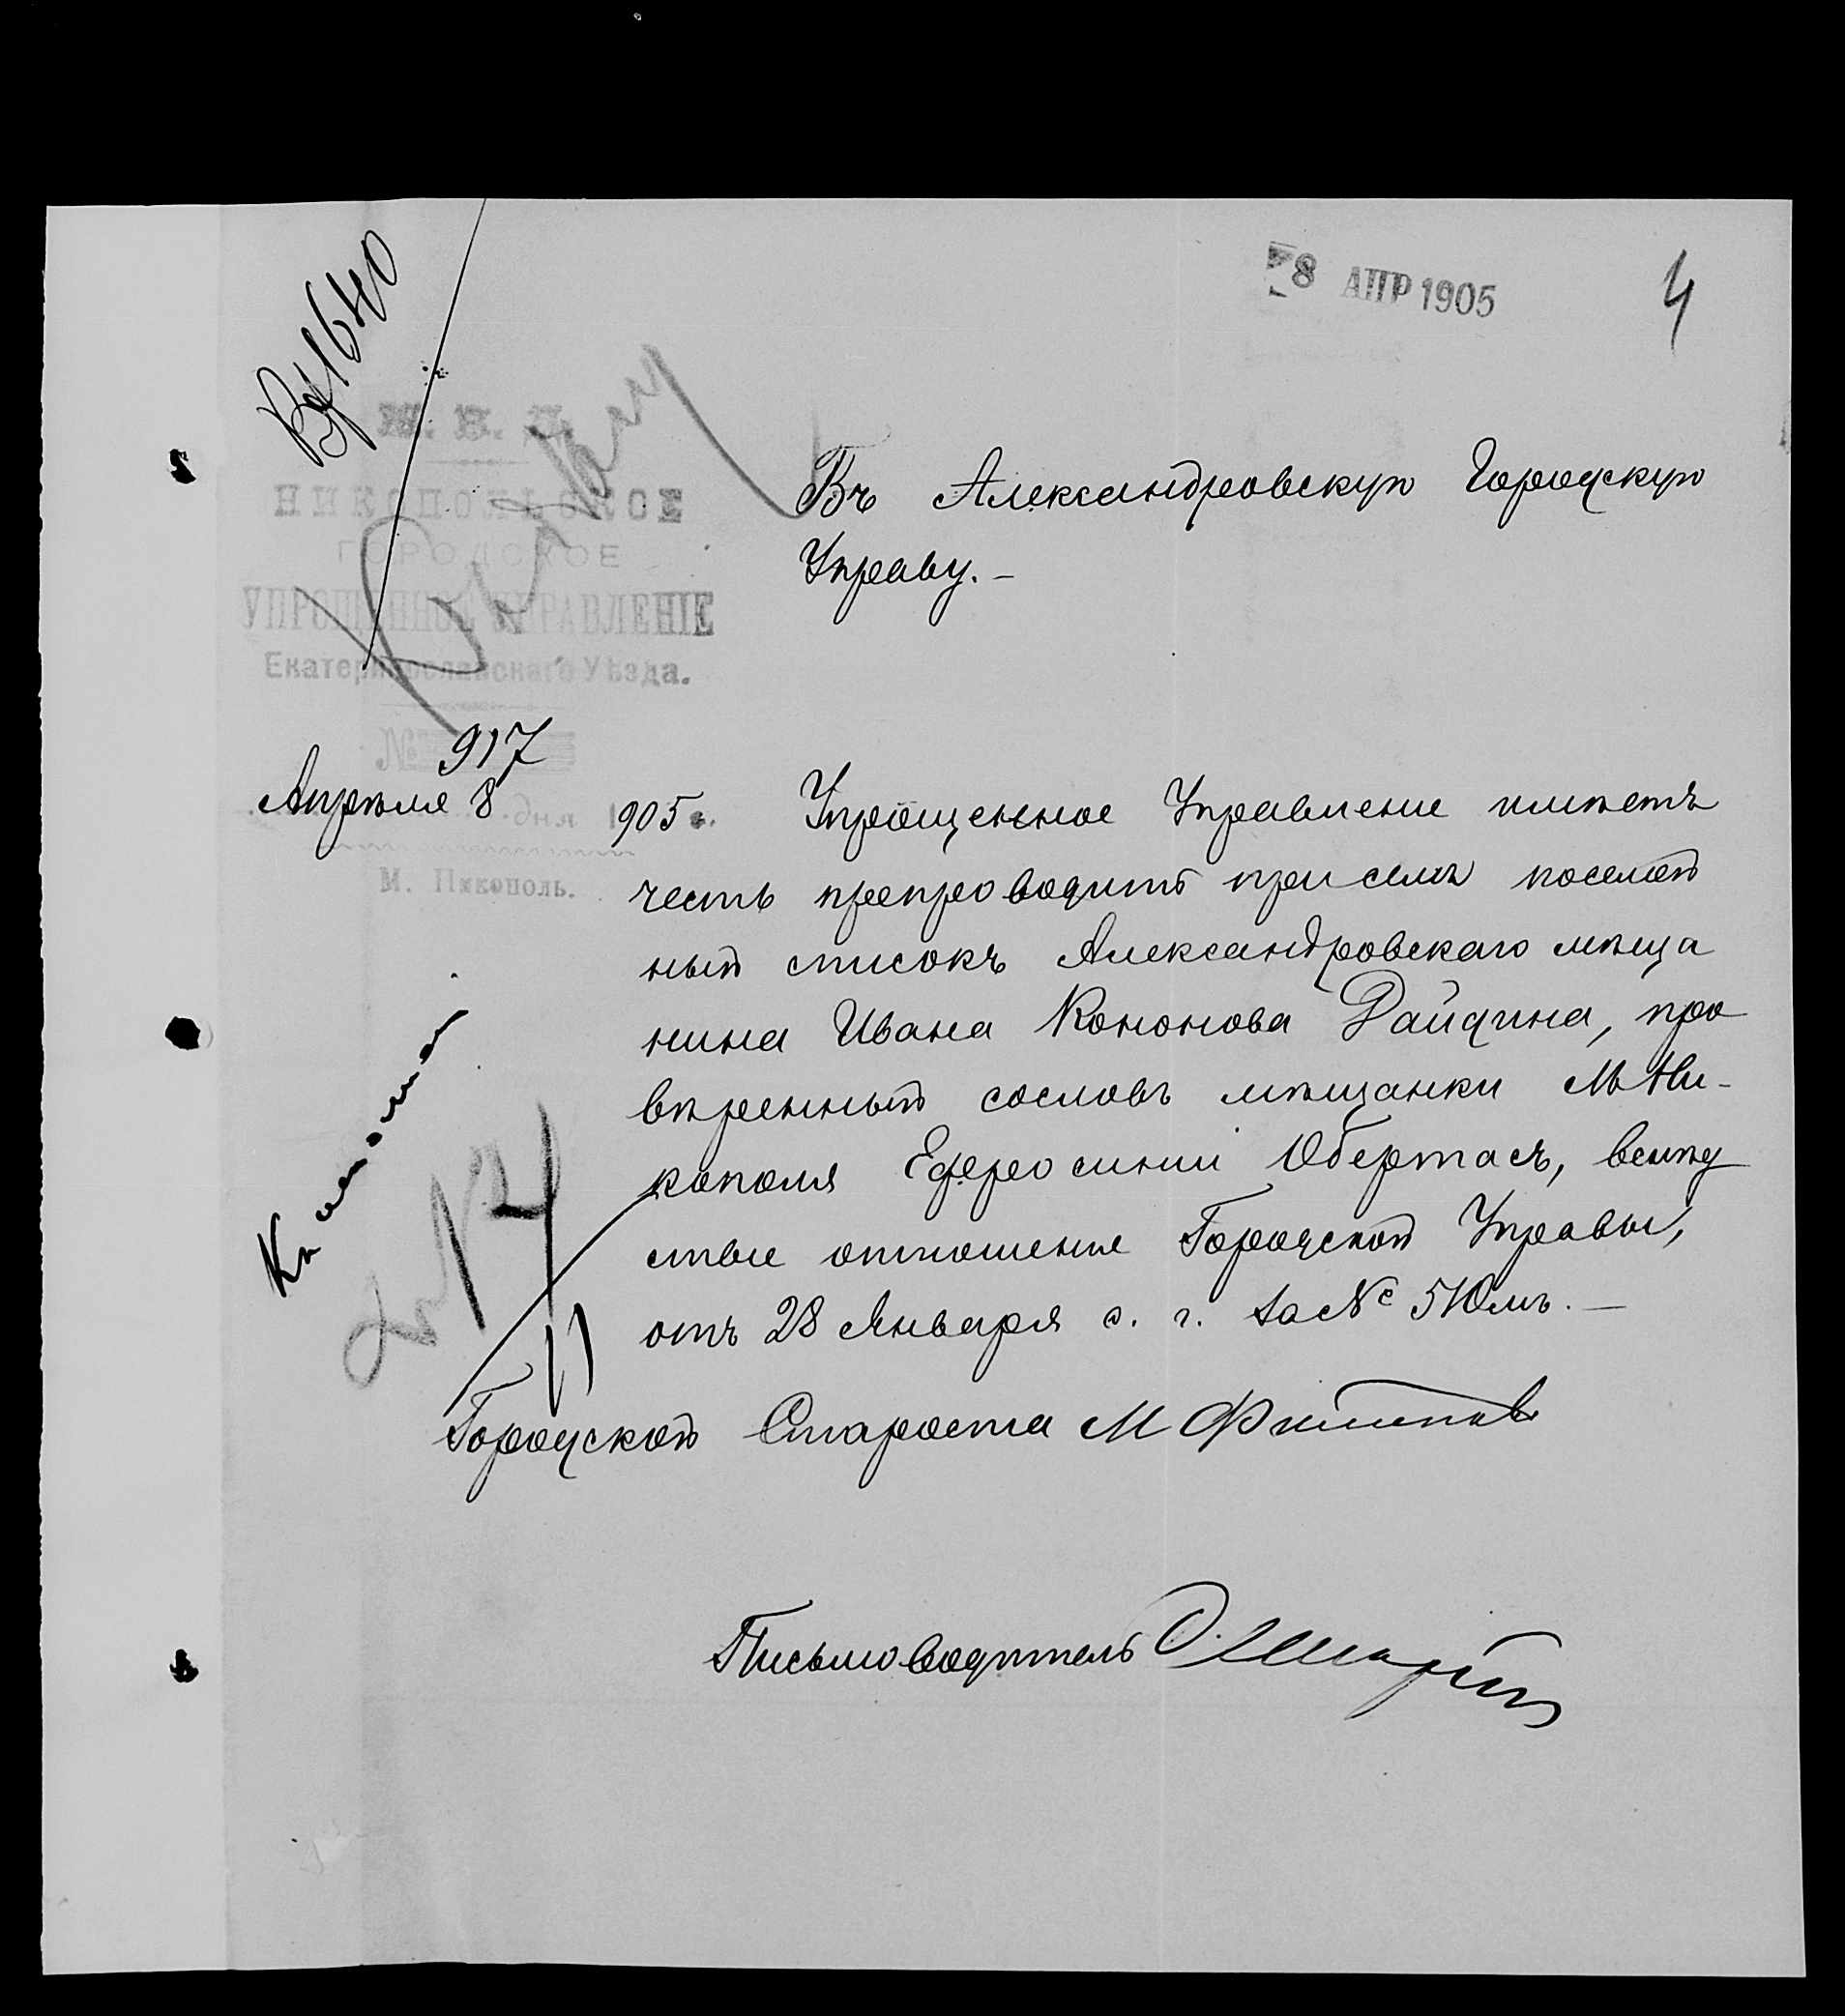 8 АПР 1905
4
М. В. Д.
НИКОПОЛЬСКОЕ
ГОРОДСКОЕ
УПРОЩЕННОЕ УПРАВЛЕНІЕ
Екатеринославскаго Уѣзда.
№ 917
Апрѣля 8 дня 1905 г.
М. Никополь.
Въ Александровскую Городскую
Управу. –
Упрощенное Управление имѣетъ
честь препроводить при семъ посемей
ный списокъ Александровскаго мѣща
нина Ивана Кононова Райдина, про
вѣренный со словъ мѣщанки М. Ни-
кополя Ефросинии Обертасъ, вслѣд
ствие отношения Городской Управы,
отъ 28 Января с. г. за № 510мъ. –
Городской Староста М Филипов
Письмоводитель